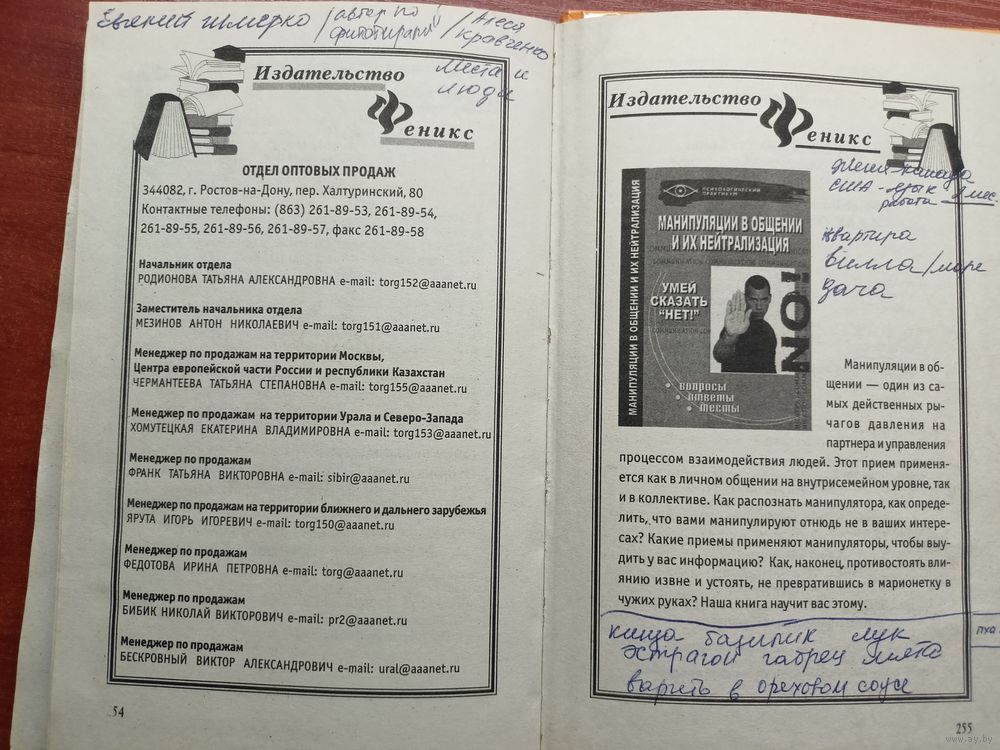 Евгений Шмерко / автор по / Алеся
фитотерапии / Кравченко
Места и
люди
Издательство
Феникс
ОТДЕЛ ОПТОВЫХ ПРОДАЖ
344082, г. Ростов-на-Дону, пер. Халтуринский, 80
Контактные телефоны: (863) 261-89-53, 261-89-54,
261-89-55, 261-89-56, 261-89-57, факс 261-89-58
Начальник отдела
РОДИОНОВА ТАТЬЯНА АЛЕКСАНДРОВНА e-mail: torg152@aaanet.ru
Заместитель начальника отдела
МЕЗИНОВ АНТОН НИКОЛАЕВИЧ e-mail: torg151@aaanet.ru
Менеджер по продажам на территории Москвы,
Центра европейской части России и республики Казахстан
ЧЕРМАНТЕЕВА ТАТЬЯНА СТЕПАНОВНА e-mail: torg155@aaanet.ru
Менеджер по продажам на территории Урала и Северо-Запада
ХОМУТЕЦКАЯ ЕКАТЕРИНА ВЛАДИМИРОВНА e-mail: torg153@aaanet.ru
Менеджер по продажам
ФРАНК ТАТЬЯНА ВИКТОРОВНА e-mail: sibir@aaanet.ru
Менеджер по продажам на территории ближнего и дальнего зарубежья
ЯРУТА ИГОРЬ ИГОРЕВИЧ e-mail: torg150@aaanet.ru
Менеджер по продажам
ФЕДОТОВА ИРИНА ПЕТРОВНА e-mail: torg@aaanet.ru
Менеджер по продажам
БИБИК НИКОЛАЙ ВИКТОРОВИЧ e-mail: pr2@aaanet.ru
Менеджер по продажам
БЕСКРОВНЫЙ ВИКТОР АЛЕКСАНДРОВИЧ e-mail: ural@aaanet.ru
54
Издательство
Феникс
канада
США - язык 2 мес.
работа
квартира
вилла/море
дача
МАНИПУЛЯЦИИ В ОБЩЕНИИ И ИХ НЕЙТРАЛИЗАЦИЯ
ПСИХОЛОГИЧЕСКИЙ
ПРАКТИКУМ
МАНИПУЛЯЦИИ В ОБЩЕНИИ
И ИХ НЕЙТРАЛИЗАЦИЯ
УМЕЙ
СКАЗАТЬ
"НЕТ!"
NO!
• вопросы
• ответы
• тесты
Манипуляции в об-
щении — один из са-
мых действенных ры-
чагов давления на
партнера и управления
процессом взаимодействия людей. Этот прием применя-
ется как в личном общении на внутрисемейном уровне, так
и в коллективе. Как распознать манипулятора, как опреде-
лить, что вами манипулируют отнюдь не в ваших интере-
сах? Какие приемы применяют манипуляторы, чтобы выу-
дить у вас информацию? Как, наконец, противостоять вли-
янию извне и устоять, не превратившись в марионетку в
чужих руках? Наша книга научит вас этому.
кинза базилик лук
эстрагон чабрец мята
варить в ореховом соусе
пха
255
www.ay.by